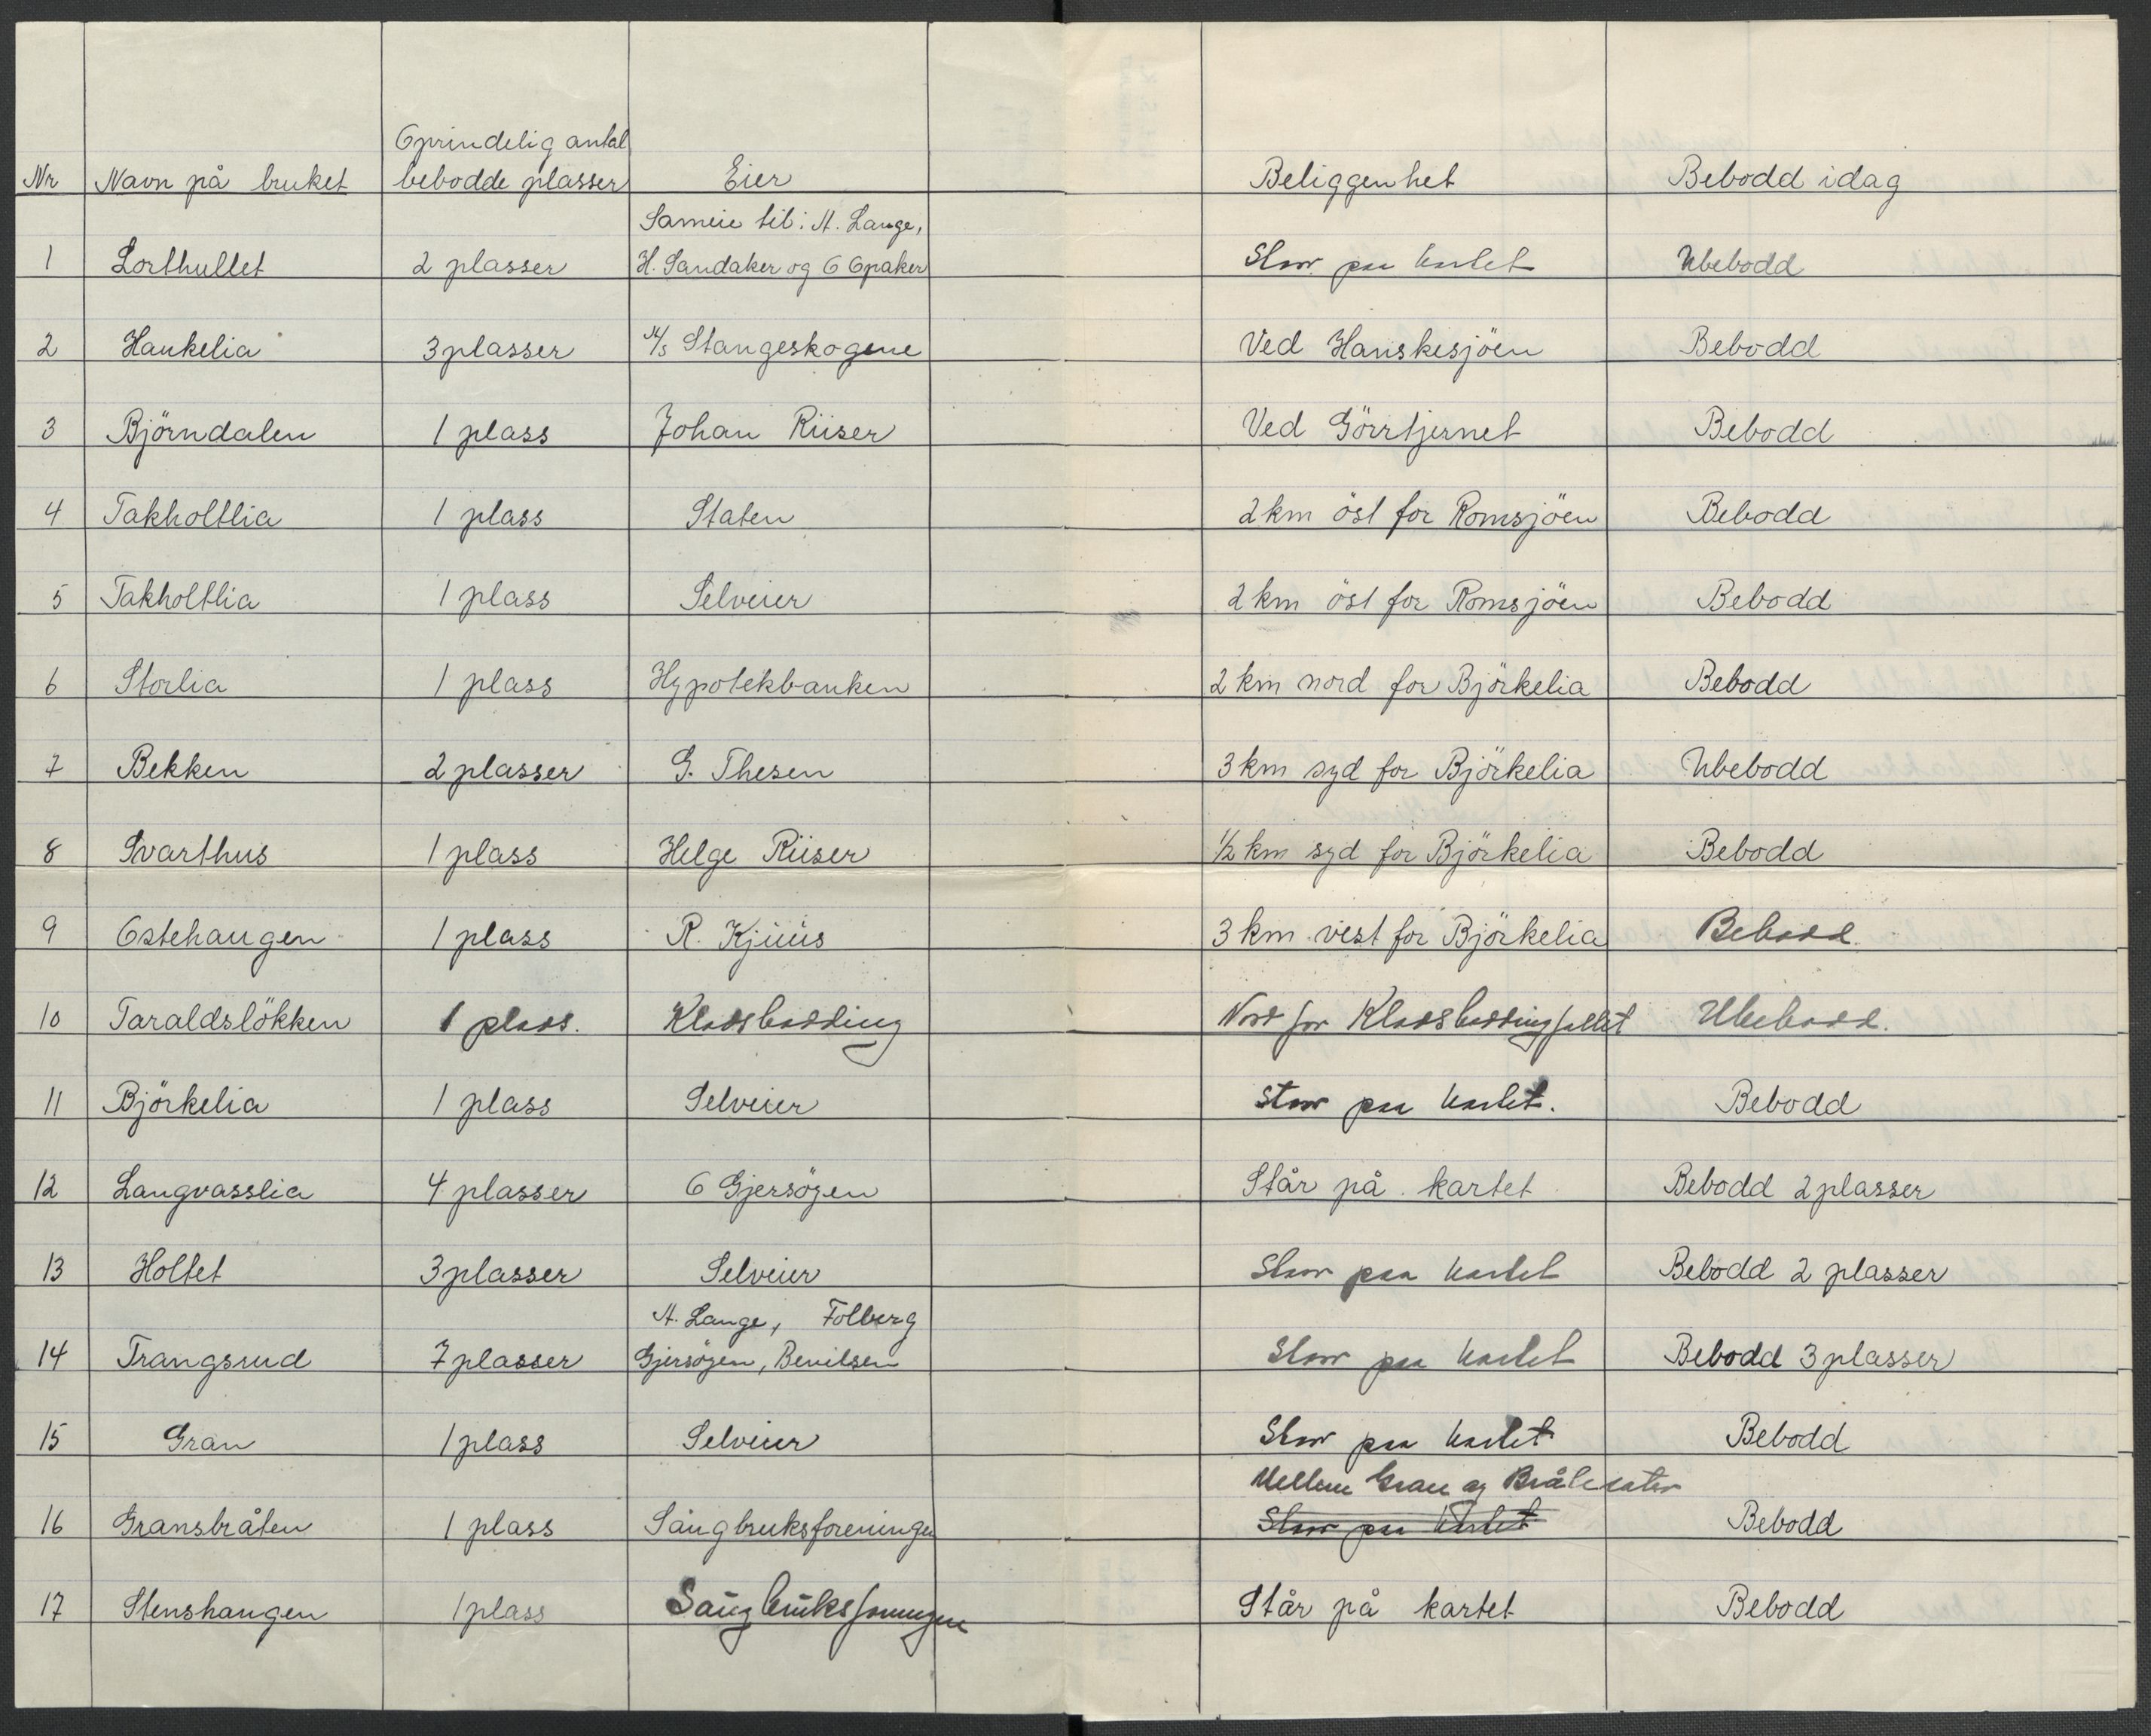 Oprindelig antal
Nr Navn på bruket bebodde plasser Eier Beliggenhet Bebodd idag
Sameie til: A. Lange,
1 Lorthullet 2 plasser H. Sandaker og O Opaker Staar paa kartet Ubebodd
2 Haukelia 3 plasser A/s Stangeskogene Ved Hanskesjöen Bebodd
3 Björndalen 1 plass Johan Riiser Ved Görrtjernet Bebodd
4 Takholtlia 1 plass Staten 2 km öst for Romsjöen Bebodd
5 Takholtlia 1 plass Selveier 2 km öst for Romsjöen Bebodd
6 Storlia 1 plass Hypotekbanken 2 km nord for Björkelia Bebodd
7 Bekken 2 plasser G. Thesen 3 km syd for Björkelia Ubebodd
8 Svarthus 1 plass Helge Riiser 1/2 km syd for Björkelia Bebodd
9 Ostehaugen 1 plass R. Kjuus 3 km vest for Björkelia Bebodd.
10 Taraldslökken 1 plass. Kladsbødding Nord for Ubebodd.
11 Björkelia 1 plass Selveier Staar paa kartet. Bebodd
12 Langvasslia 4 plasser O Gjersöyen Står på kartet Bebodd 2 plasser
13 Holtet 3 plasser Selveier Staar paa kartet Bebodd 2 plasser
A. Lange, Tolberg
14 Trangsrud 7 plasser Gjersöyen, Berilsen Staar paa kartet Bebodd 3 plasser
15 Gran 1 plass Selveier Staar paa kartet Bebodd
Mellem Gran og Bråtesater
16 Gransbråten 1 plass Saugbruksforeningen Staar paa kartet Bebodd
17 Stenshaugen 1 plass Saugbruksforeningen Står på kartet Bebodd